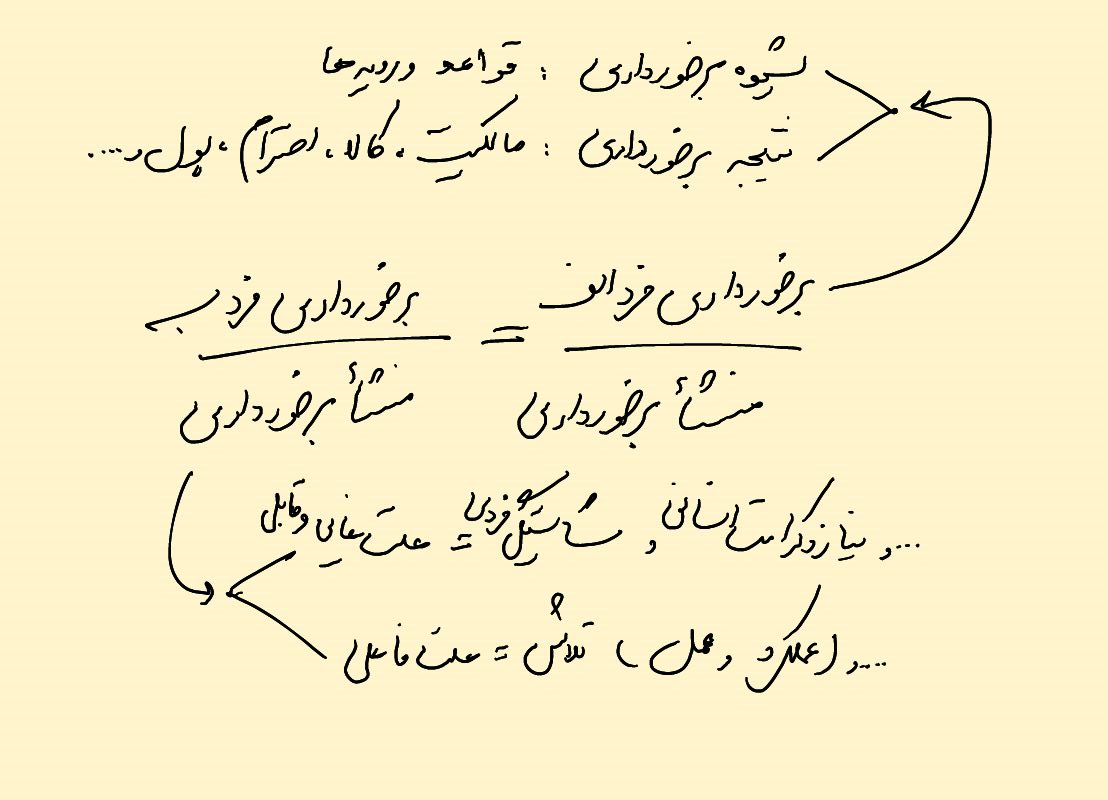 شیوه برخورداری : قواعد و رویه‌ها
نتیجه برخورداری : مالکیت، کالا، احترام، پول و....
برخورداری فرد الف = برخورداری فرد ب
منشأ برخورداری منشأ برخورداری
علت غایی و قابلی = شایستگی فردی و نیاز و کرامت انسانی و...
علت فاعلی = تلاش (عمل و عملکرد) و....